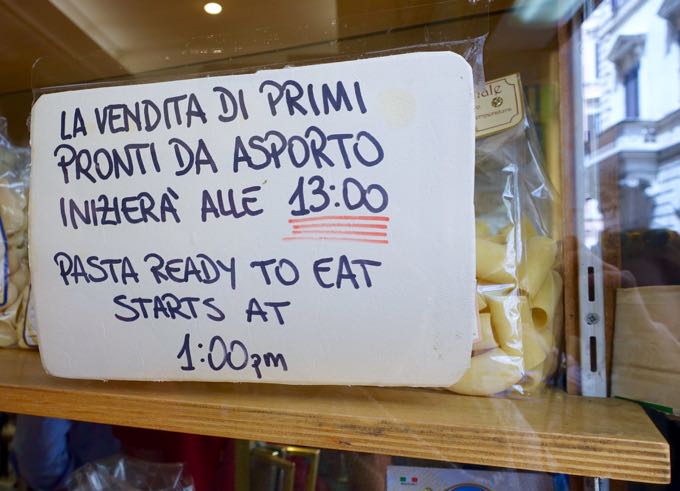 LA VENDITA DI PRIMI
PRONTI DA ASPORTO
INIZIERÀ ALLE 13:00
PASTA READY TO EAT
STARTS AT
1:00pm